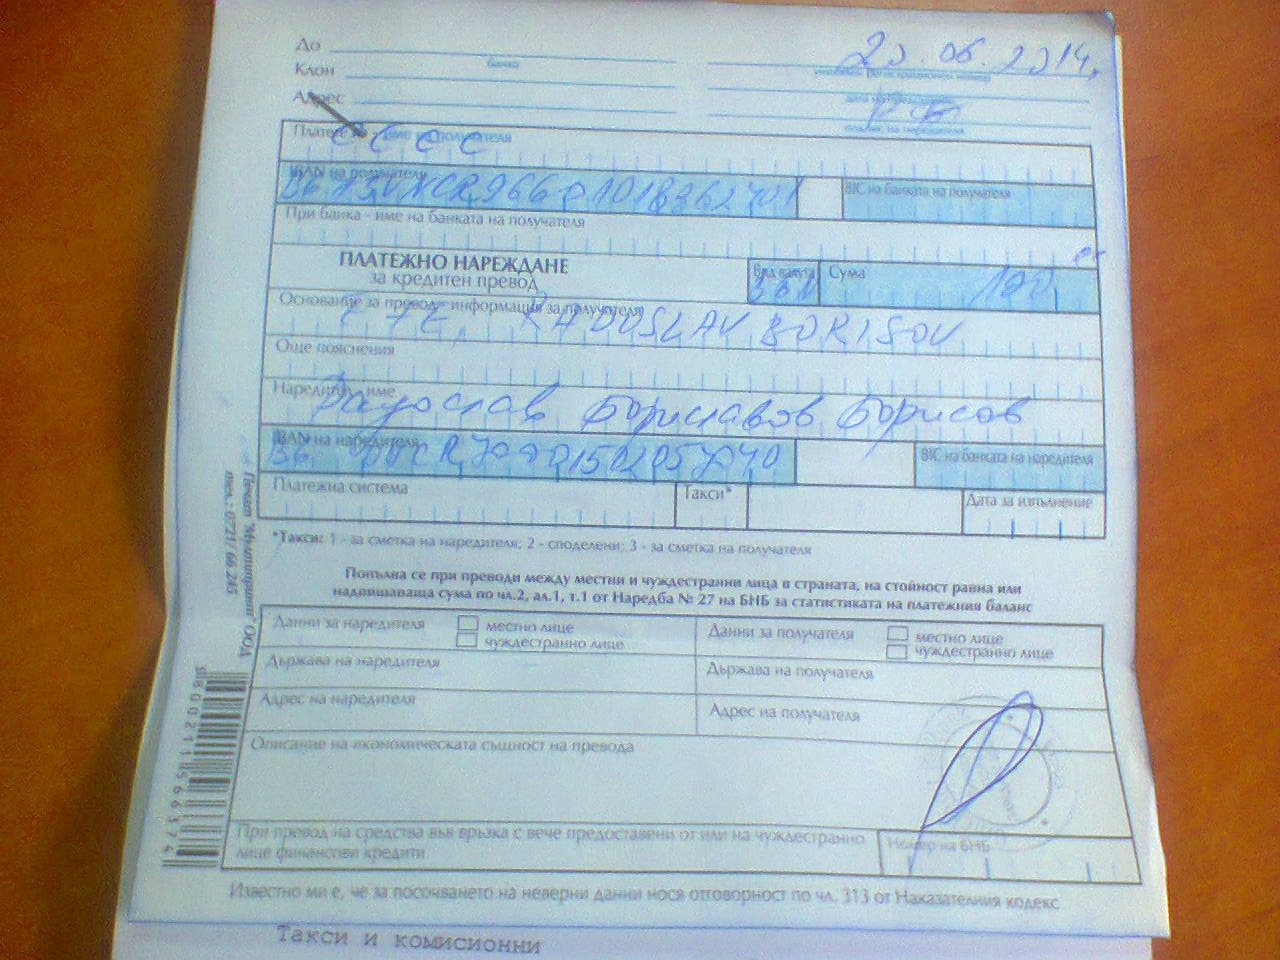 До
банка
20.06.2014.
Клон
уникален регистрационен номер
Адрес
дата на представяне
подпис на наредителя
Платете на - име на получателя
СССС
IBAN на получателя
BIC на банката на получателя
При банка - име на банката на получателя
ПЛАТЕЖНО НАРЕЖДАНЕ
за кредитен превод
Вид валута
Сума
BGN
120
Основание за превод - информация за получателя
RADOSLAV BORISOV
Още пояснения
Наредител - име
Радослав Бориславов Борисов
IBAN на наредителя
BIC на банката на наредителя
Платежна система
Такси*
Дата за изпълнение
*Такси: 1 - за сметка на наредителя; 2 - споделени; 3 - за сметка на получателя
Попълва се при преводи между местни и чуждестранни лица в страната, на стойност равна или
надвишаваща сума по чл.2, ал.1, т.1 от Наредба № 27 на БНБ за статистиката на платежния баланс
Данни за наредителя
местно лице
чуждестранно лице
Данни за получателя
местно лице
чуждестранно лице
Държава на наредителя
Държава на получателя
Адрес на наредителя
Адрес на получателя
Описание на икономическата същност на превода
При превод на средства във връзка с вече предоставени от или на чуждестранно
лице финансови кредити
Номер на БНБ
Известно ми е, че за посочването на неверни данни нося отговорност по чл. 313 от Наказателния кодекс
Такси и комисионни
Печат "Мултипринт" ООД
тел.: 0721/ 66 245